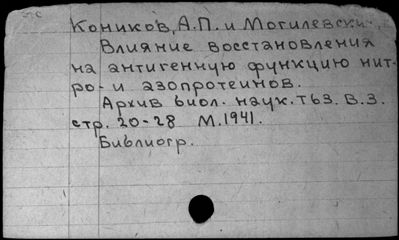 Коников, А.П. и Могилевски
Влияние восстановления
на антигенную функцию нит-
ро- и азопротеинов.
Архив биол. наук. т63. в.3.
стр. 20-28 М.1941.
Библиогр.